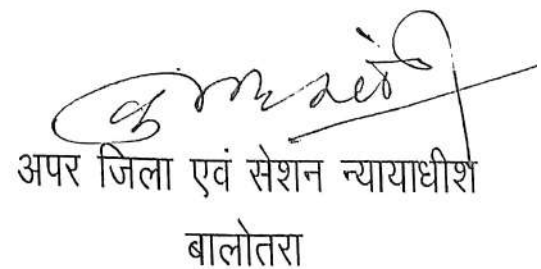 अपर जिला एवं सेशन न्यायाधीश
बालोतरा